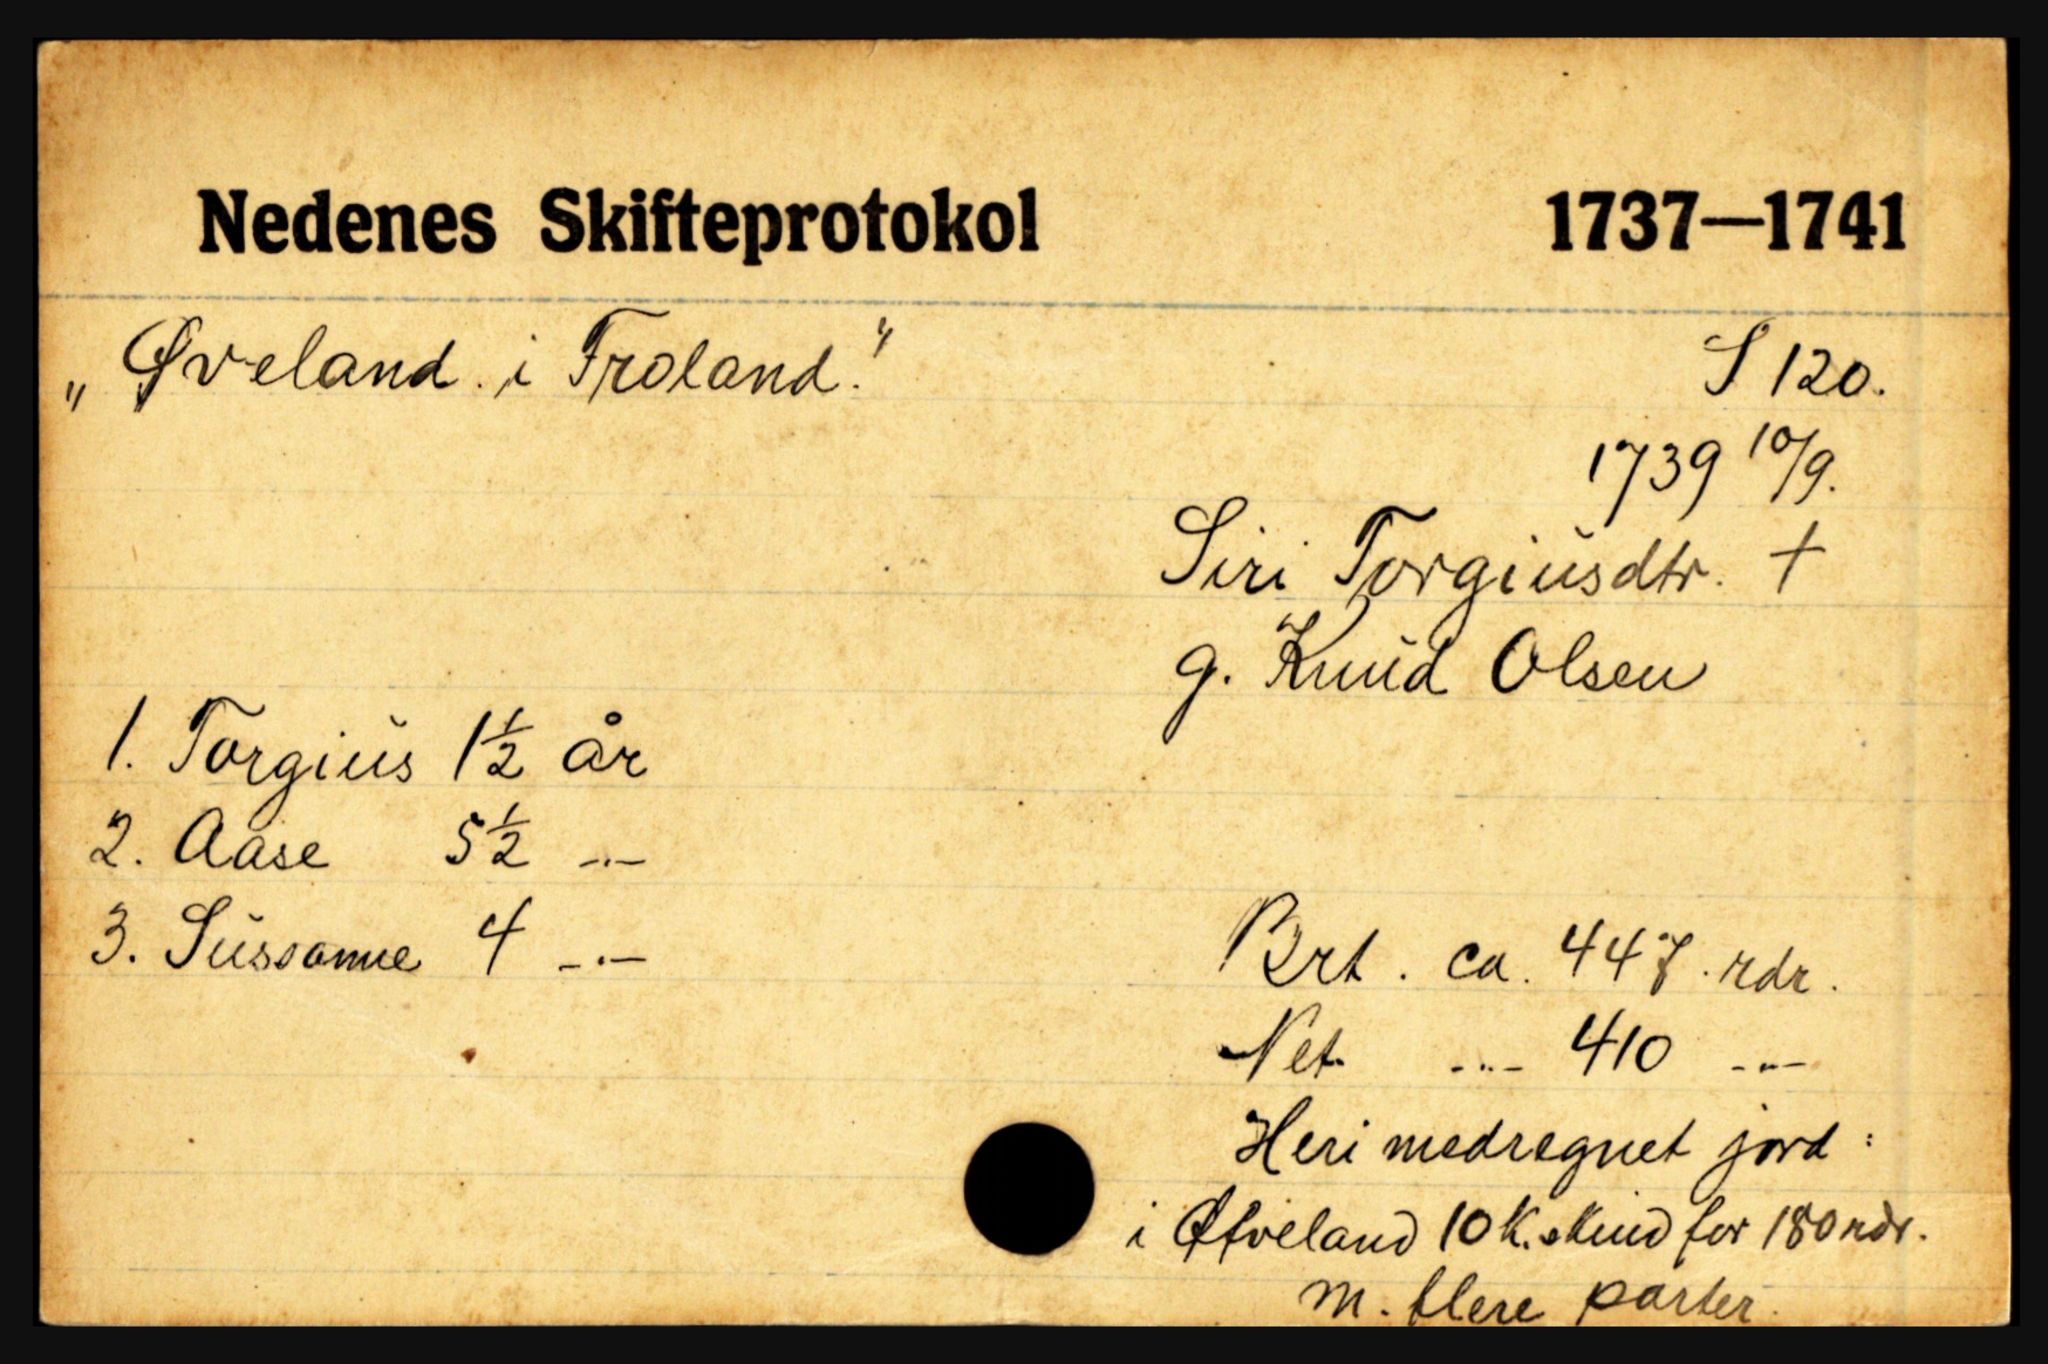 Nedenes Skifteprotokol 1737—1741
„Øveland i Froland." S 120.
1739 10/9.
Siri Torgiusdtr. †
g. Knud Olsen
1. Torgius 1½ år
2. Aase 5½ -"-
3. Sussanne 4 -"-
Brt. ca. 447 rdr.
Net -"- 410 -"-
Heri medregnet jord:
i Øfveland 10 K.skind for 180 rdr.
m. flere parter.